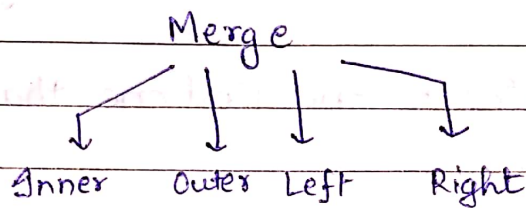 Merge
Inner Outer Left Right